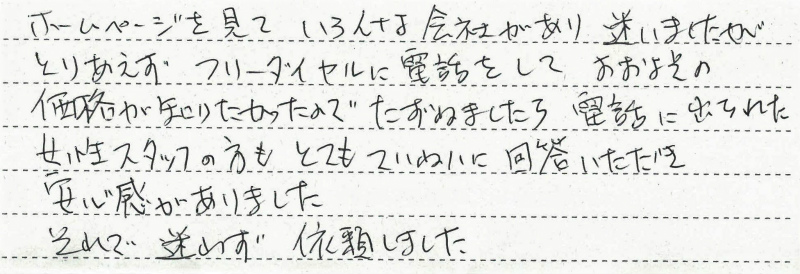 ホームページを見て いろんな会社があり 迷いましたが
とりあえず フリーダイヤルに電話をして おおよその
価格が知りたかったので たずねましたら 電話に出られた
女性スタッフの方も とても ていねいに 回答いただき
安心感がありました
それで 迷わず 依頼しました